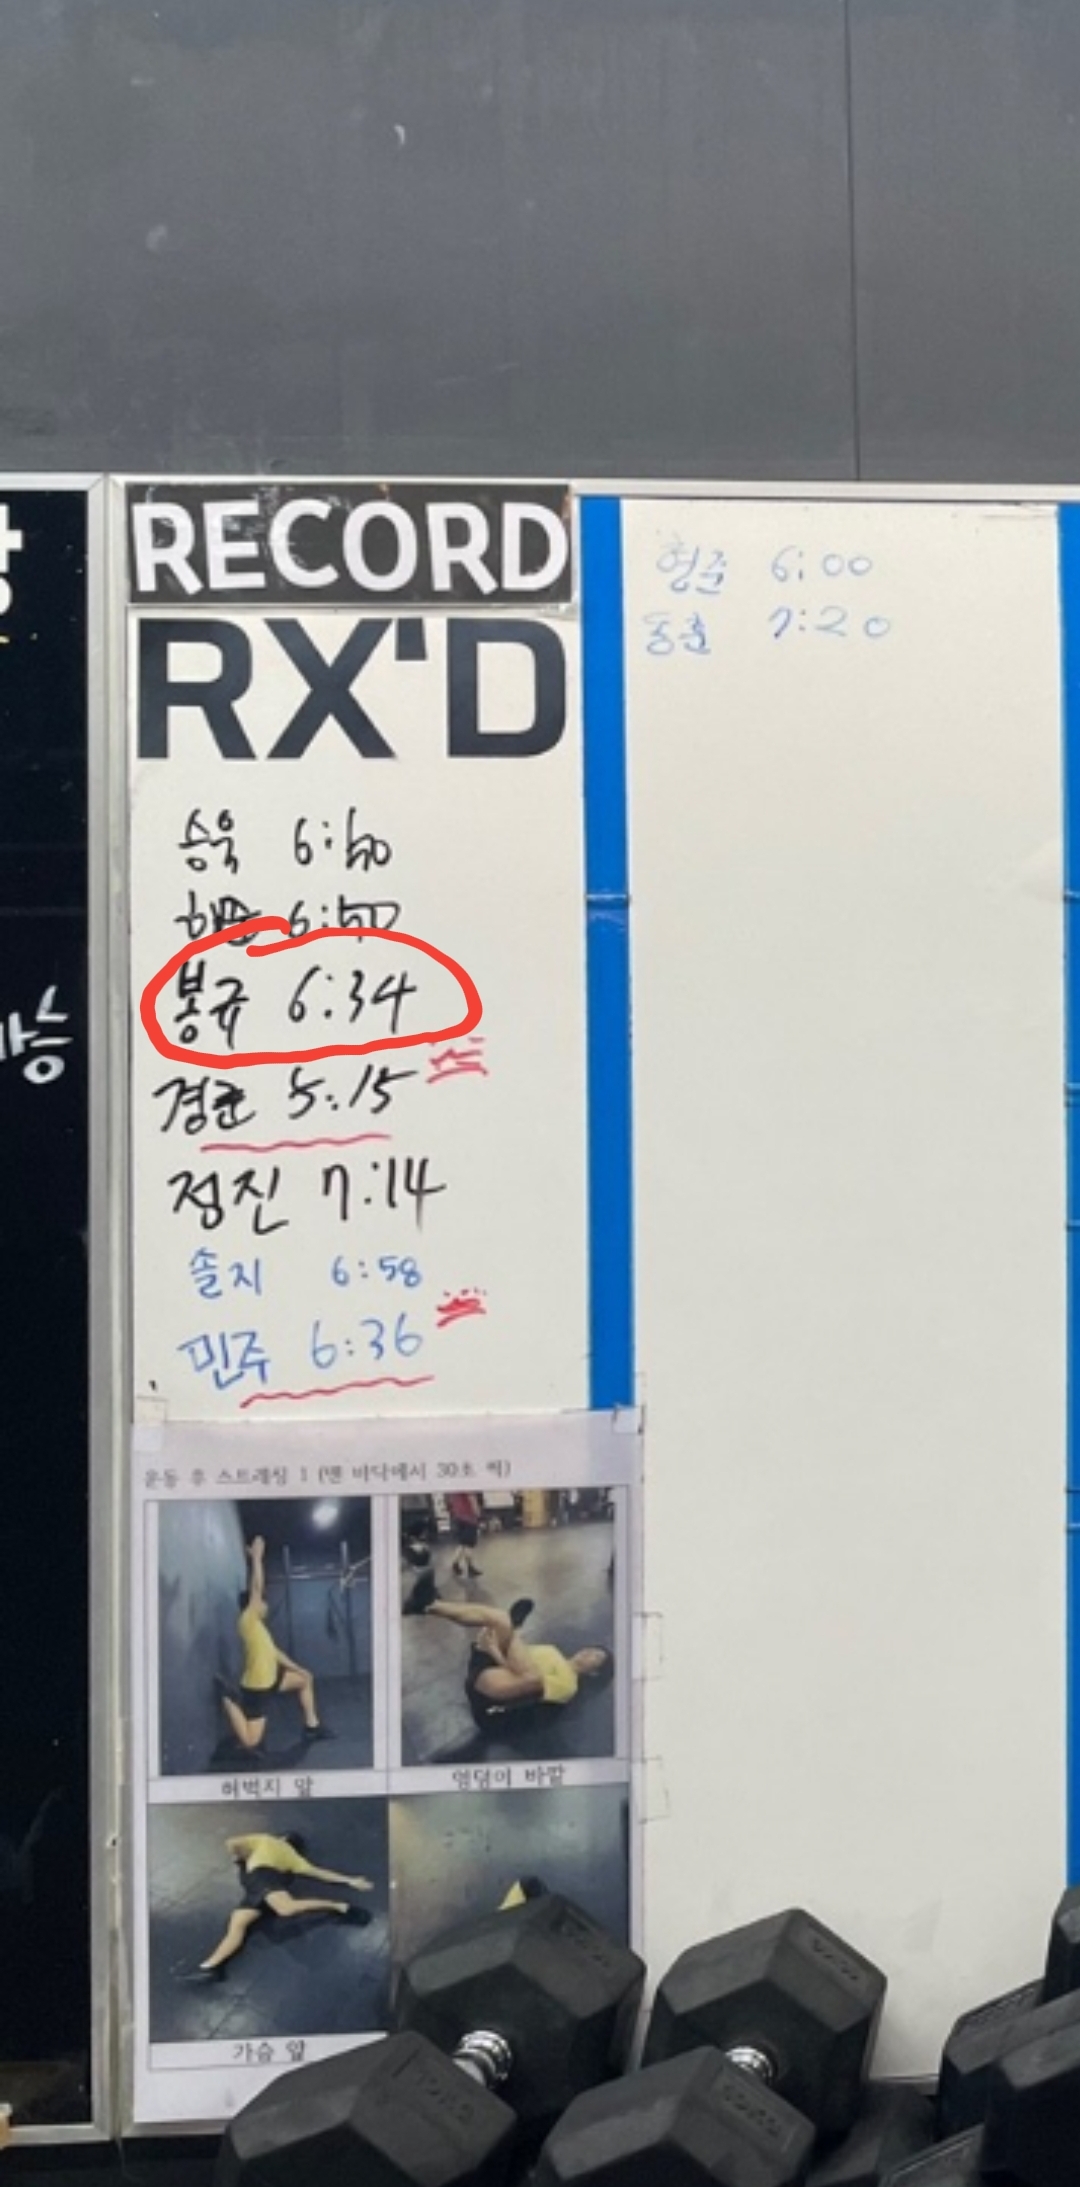 RECORD
RX'D
승욱 6:50
6:50
봉규 6:34
경근 5:15
정진 7:14
솔지 6:58
민주 6:36
형준 6:00
동훈 7:20
운동 후 스트레칭 1 (맨 바닥에서 30초 씩)
허벅지 앞
엉덩이 바깥
가슴 앞